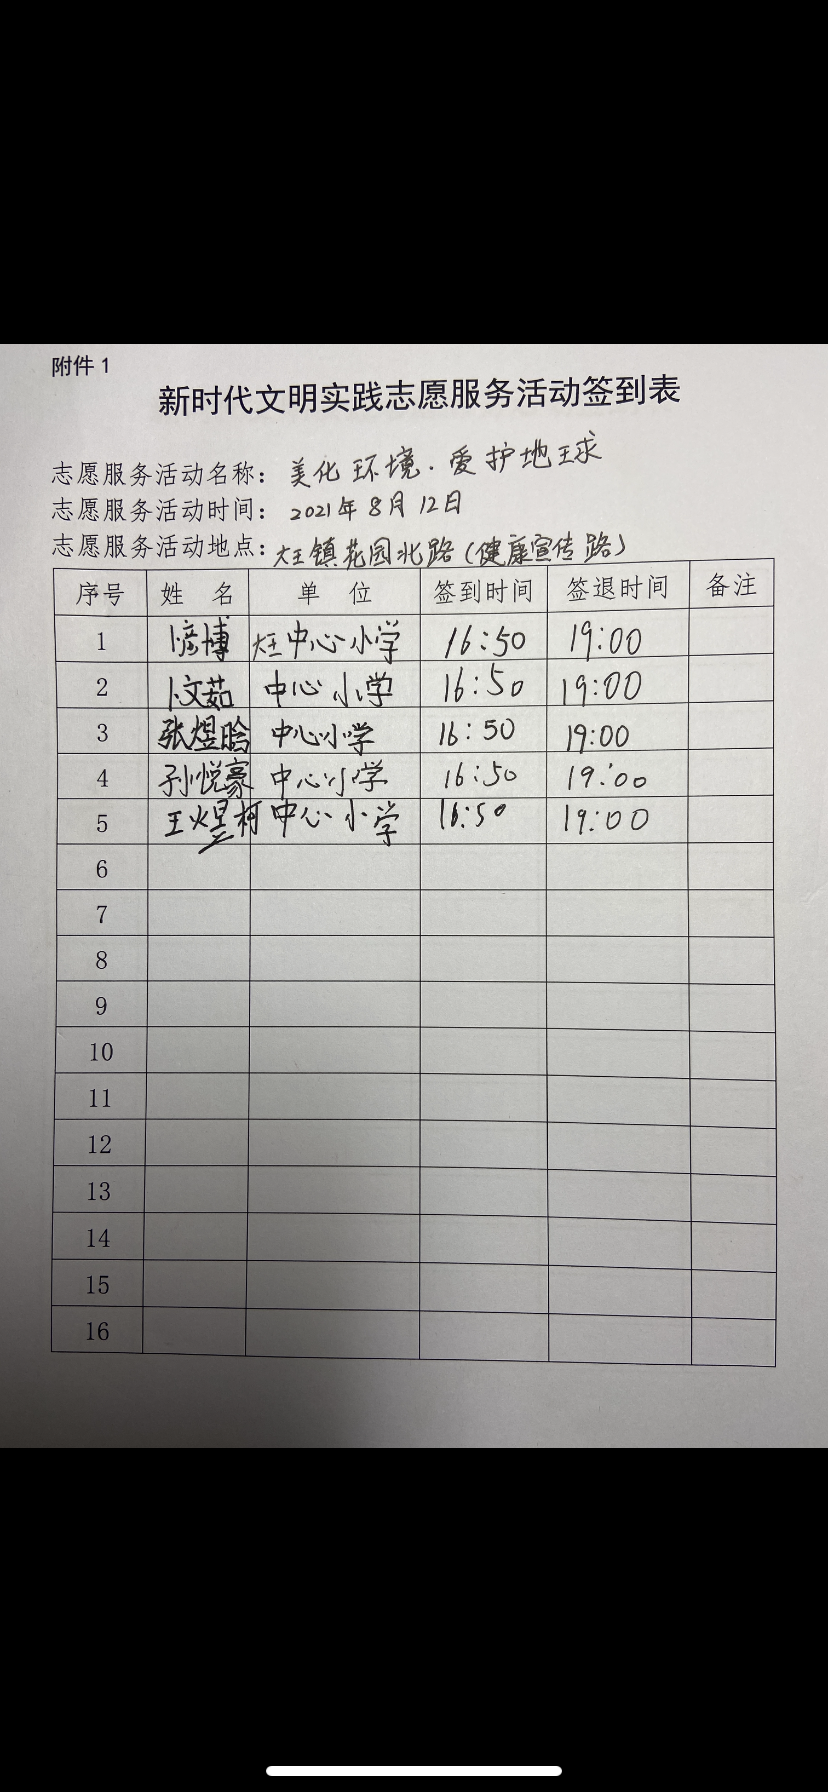 附件 1
新时代文明实践志愿服务活动签到表
志愿服务活动名称：美化环境.爱护地球
志愿服务活动时间：2021年8月12日
志愿服务活动地点：大王镇花园北路(健康宣传路)
序号 姓 名 单 位 签到时间 签退时间 备注
1 卜彦博 大王中心小学 16:50 19:00
2 卜文茹 中心小学 16:50 19:00
3 张煜晗 中心小学 16:50 19:00
4 孙悦豪 中心小学 16:50 19:00
5 王煜柯 中心小学 16:50 19:00
6
7
8
9
10
11
12
13
14
15
16